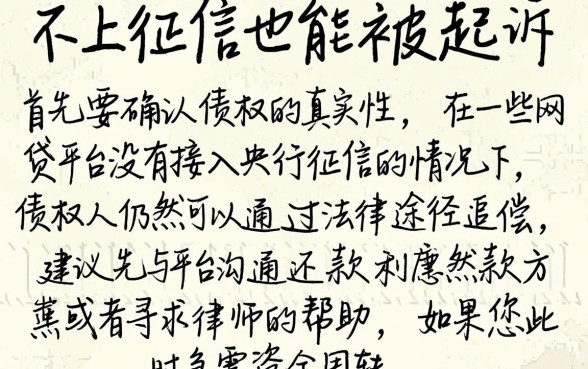 不上征信也能被起诉
首先要确认债权的真实性，在一些网
贷平台没有接入央行征信的情况下，
债权人仍然可以通过法律途径追偿，
建议先与平台沟通还款利息然款方
案或者寻求律师的帮助，如果您此
时急需资金周转